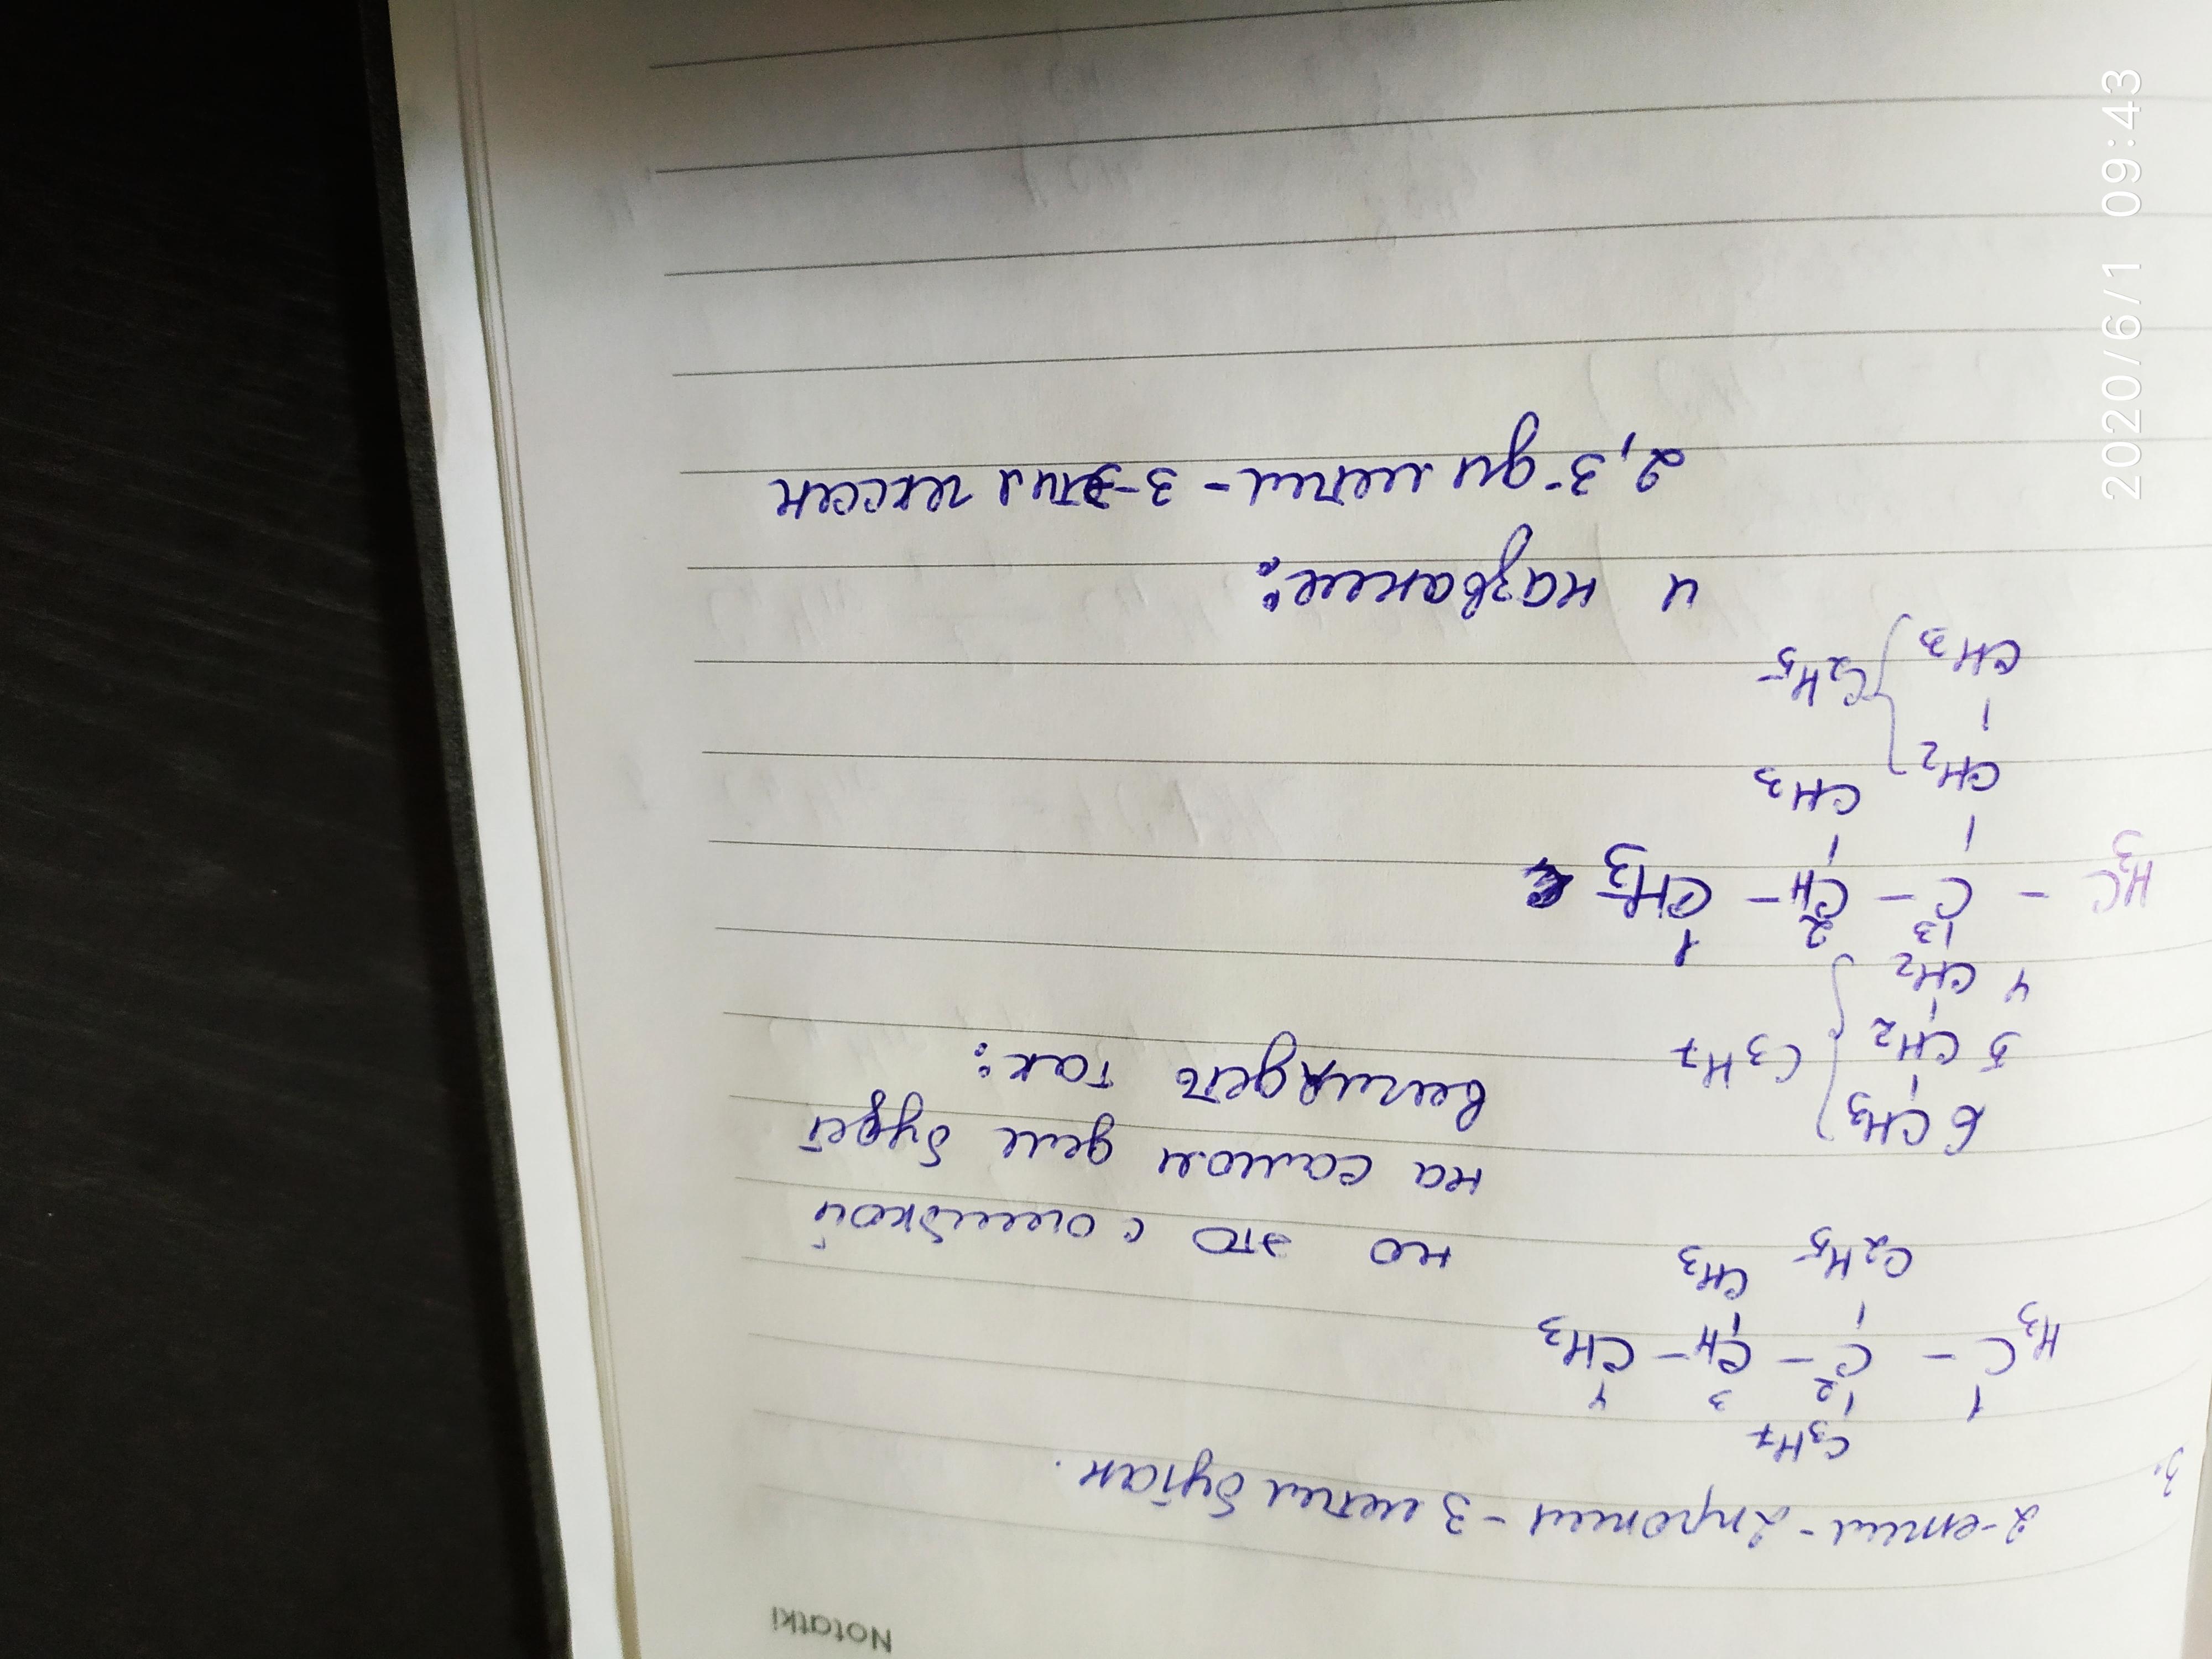 Notatki
3.
2-етил-2пропил-3 метил бутан.
C3H7
1 2 3 4
H3C - C - CH - CH3
C2H5 CH3
но это с ошибкой
на самом деле будет
выглядеть так:
6 CH3
5 CH2 } C3H7
4 CH2
3 2 1
H3C - C - CH - CH3
CH2 CH3
CH3 } C2H5
и название:
2,3-ди метил-3-этил гексан
2020/6/1 09:43